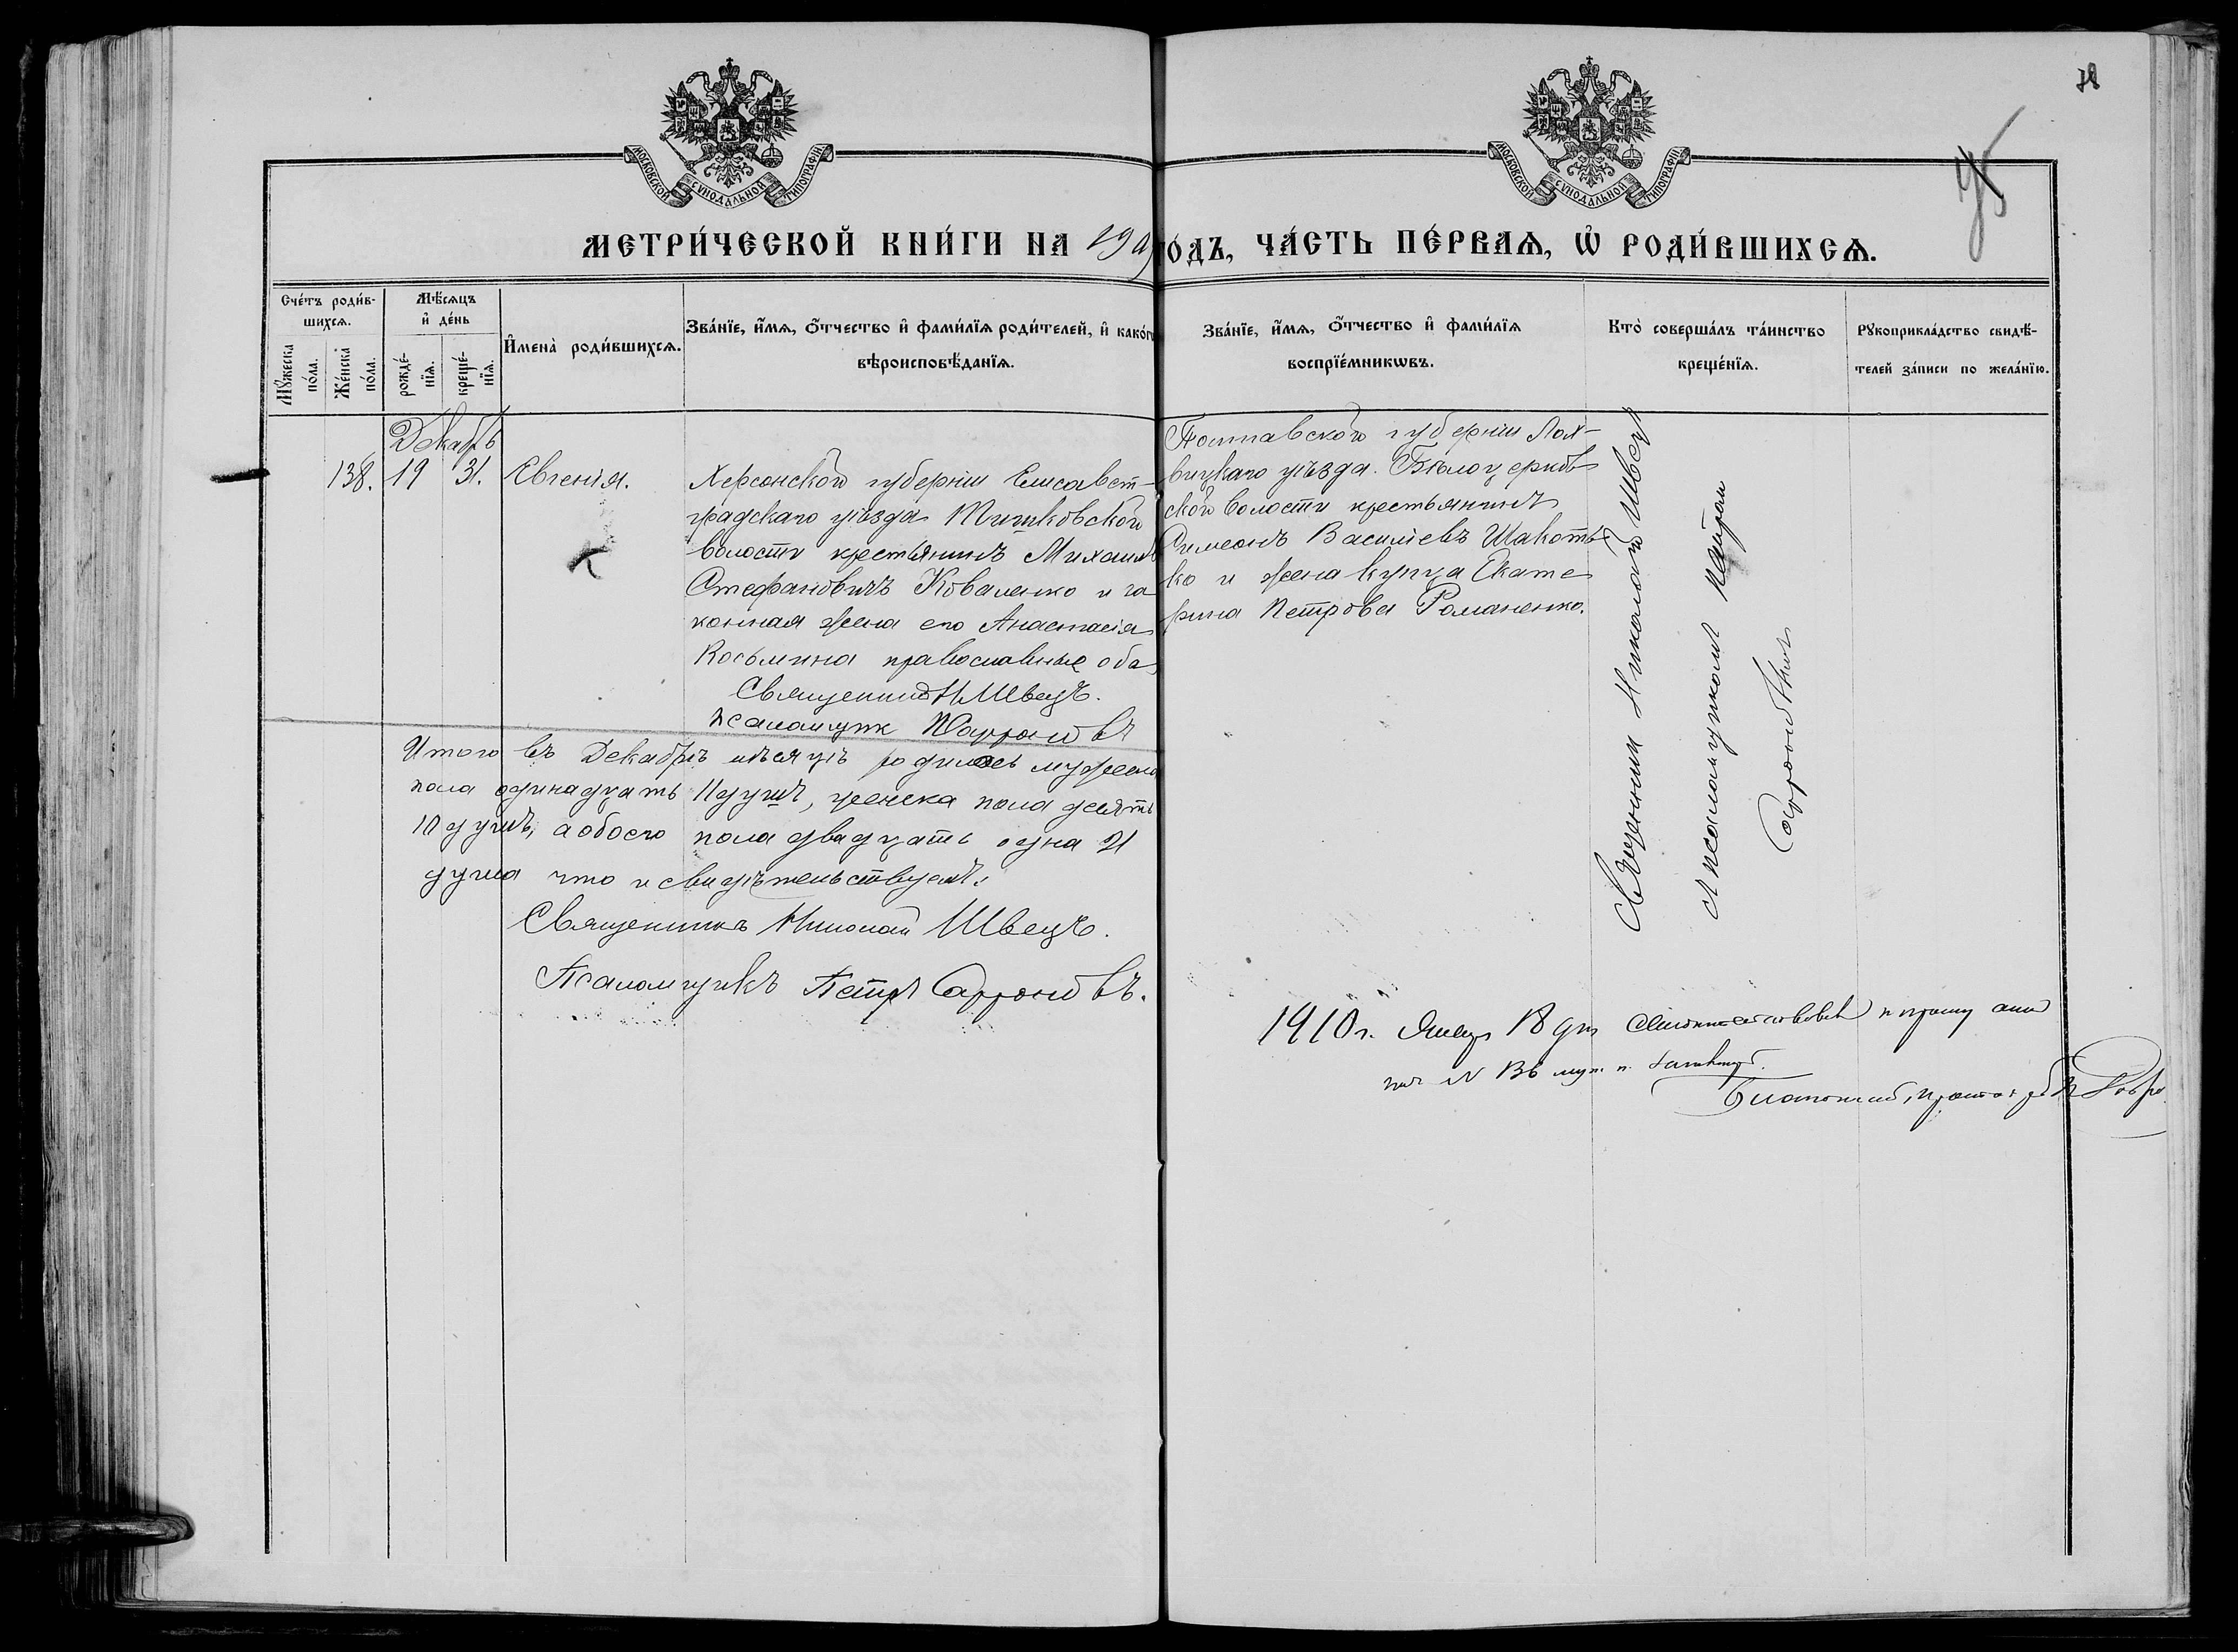 78
75
МОСКОВСКОЙ СѴНОДАЛЬНОЙ ТИПОГРАФІИ
МОСКОВСКОЙ СѴНОДАЛЬНОЙ ТИПОГРАФІИ
МЕТРИ́ЧЕСКОЙ КНИ́ГИ НА 190
ГО́ДЪ, ЧА́СТЬ ПЕ́РВАѦ, Ѡ҆ РОДИ́ВШИХСѦ.
Сче́тъ роди́в-
шихсѧ.
Мꙋ́жеска по́ла.
Же́нска по́ла.
Мѣ́сѧцъ
и҆ де́нь
рожде́-
нїѧ.
креще́-
нїѧ.
И҆мена̀ роди́вшихсѧ.
Зва́нїе, и҆́мѧ, о҆́тчество и҆ фами́лїѧ роди́телей, и҆ како́гѡ
вѣроисповѣ́данїѧ.
Зва́нїе, и҆́мѧ, о҆́тчество и҆ фами́лїѧ
воспрїе́мникѡвъ.
Кто̀ соверша́лъ та́инство
креще́нїѧ.
Рꙋкоприкла́дство свидѣ́-
телей за́писи по жела́нїю.
Декабрь
138. 19 31. Евгенія.
Херсонской губерніи Елисавет-
градскаго уѣзда Тишковской
волости крестьянинъ Михаилъ
Стефановичъ Коваленко и за
конная жена его Анастасія
Косьмина православные оба
Священникъ Н. Швецъ.
Псаломщик П. Сафроновъ
Полтавской губерніи Лох-
вицкаго уѣзда. Бѣлоцерков
ской волости крестьянинъ
Симеонъ Васильевъ Шакоть
ко и жена купца Екате
рина Петрова Романенко.
Священник Николай Швецъ
съ псаломщикомъ Петром
Сафроновым
Итого въ Декабрѣ мѣсяцѣ родилось мужеска
пола одинадцать 11 душъ, женска пола десять
10 душъ, а обоего пола двадцать одна 21
душа что и свидѣтельствуемъ:
Священникъ Николай Швецъ.
Псаломщикъ Петръ Сафроновъ.
1910 г. Январ 18 дн
Благочинный, протоіерей